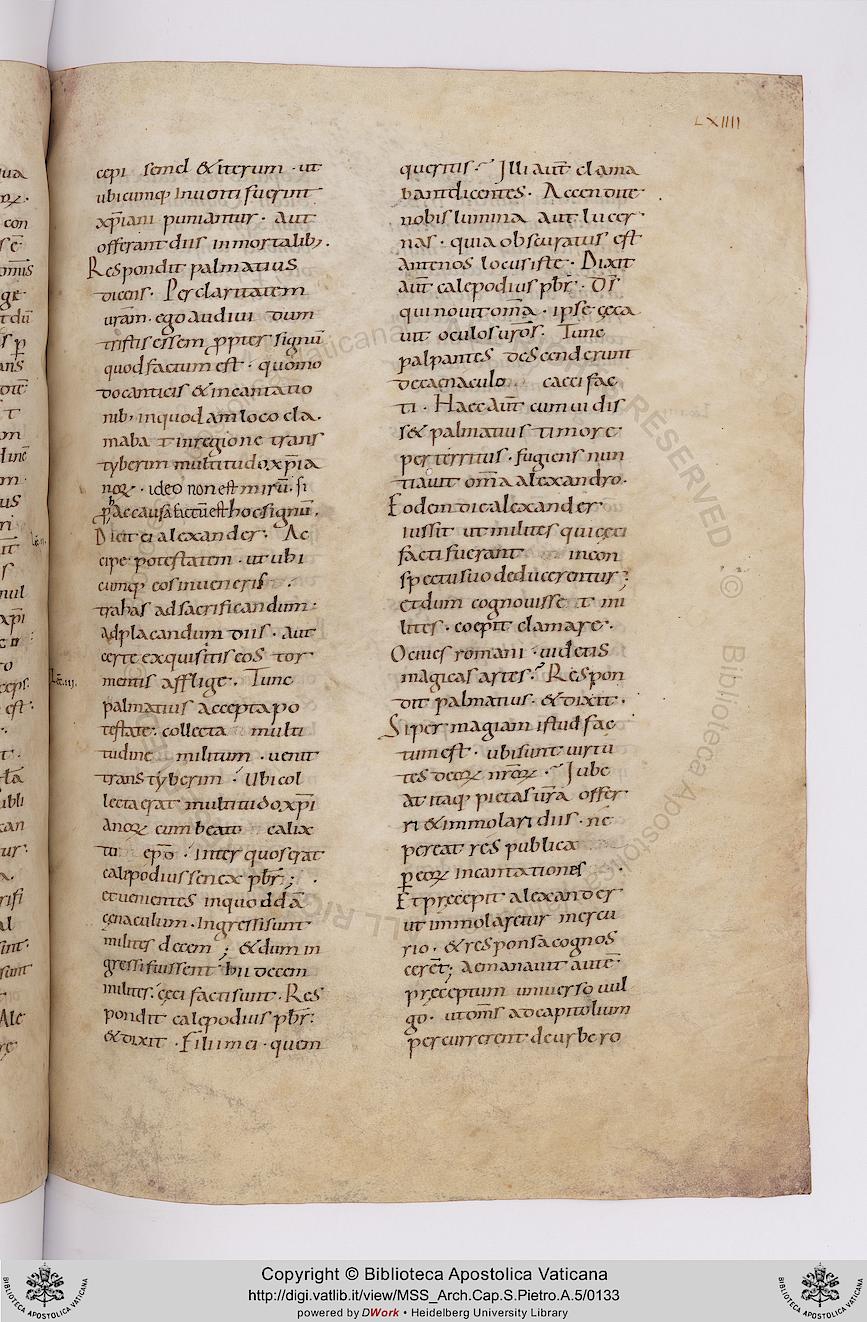 LXIIII
cepi semel & iterum · ut
ubicumq; inuenti fuerint
xp̄iani puniantur · aut
offerant diis inmortalib;.
Respondit palmatius
dicens. Per claritatem
uram. ego audiui dum
tristis essem ꝓpter signū
quod factum est · quomo
do canticis & incantatio
nib; in quodam loco cla.
maba t in regione trans
tyberim multitudo xp̄ia
noꝝ · ideo non est mirū · si
ꝑ hac causa factū est hoc signū.
Dicit ei alexander · Ac
cipe potestatem · ut ubi
cumq; eos inueneris ·
trahas ad sacrificandum ·
ad placandum diis · aut
certe exquisitis eos tor
mentis afflige. Tunc
palmatius accepta po
testate · collecta multi
tudine militum · uenit
trans tyberim · Ubi col
lecta erat multitudo xp̄i
anoꝝ cum beato calix
to ep̄o · inter quos erat
calepodius senex pb̄r; ·
et uenientes in quoddā
cenaculum · Ingressi sunt
milites decem; & dum in
gressi fuissent hii decem
milites · ceci facti sunt. Res
pondit calepodius pb̄r:
& dixit · Filii mei · quem
queritis · Illi aut̄ clama
bant dicentes · Accendite
nobis lumina aut lucer
nas · quia obscuratus est
ante nos locus iste · Dixit
aut̄ calepodius pb̄r · Ds̄
qui nouit om̄a · ipse ceca
uit oculos ur̄os. Tunc
palpantes descenderunt
de caenaculo caeci fac
ti · Haec aut̄ cum uidis
s& palmatius timore
perterritus · fugiens nun
tiauit om̄a alexandro.
Eodem die alexander
iussit ut milites qui ceci
facti fuerant incon
spectu suo deducerentur;
et dum cognouisse t mi
lites · coepit clamare.
O ciues romani · uidetis
magicas artes · Respon
dit palmatius · & dixit ·
Si per magiam istud fac
tum est · ubi sunt uirtu
tes deoꝝ nr̄oꝝ · Iube
at itaq; pietas ur̄a offer
ri & immolari diis · ne
pereat res publica
ꝑ eoꝝ incantationes ·
Et precepit alexander
ut immolaretur mercu
rio · & responsa cognos
ceret; aemanauit autē
preceptum uniuerso uul
go · ut om̄s ad capitolium
percurrerent de urbe ro
Copyright © Biblioteca Apostolica Vaticana
http://digi.vatlib.it/view/MSS_Arch.Cap.S.Pietro.A.5/0133
powered by DWork • Heidelberg University Library